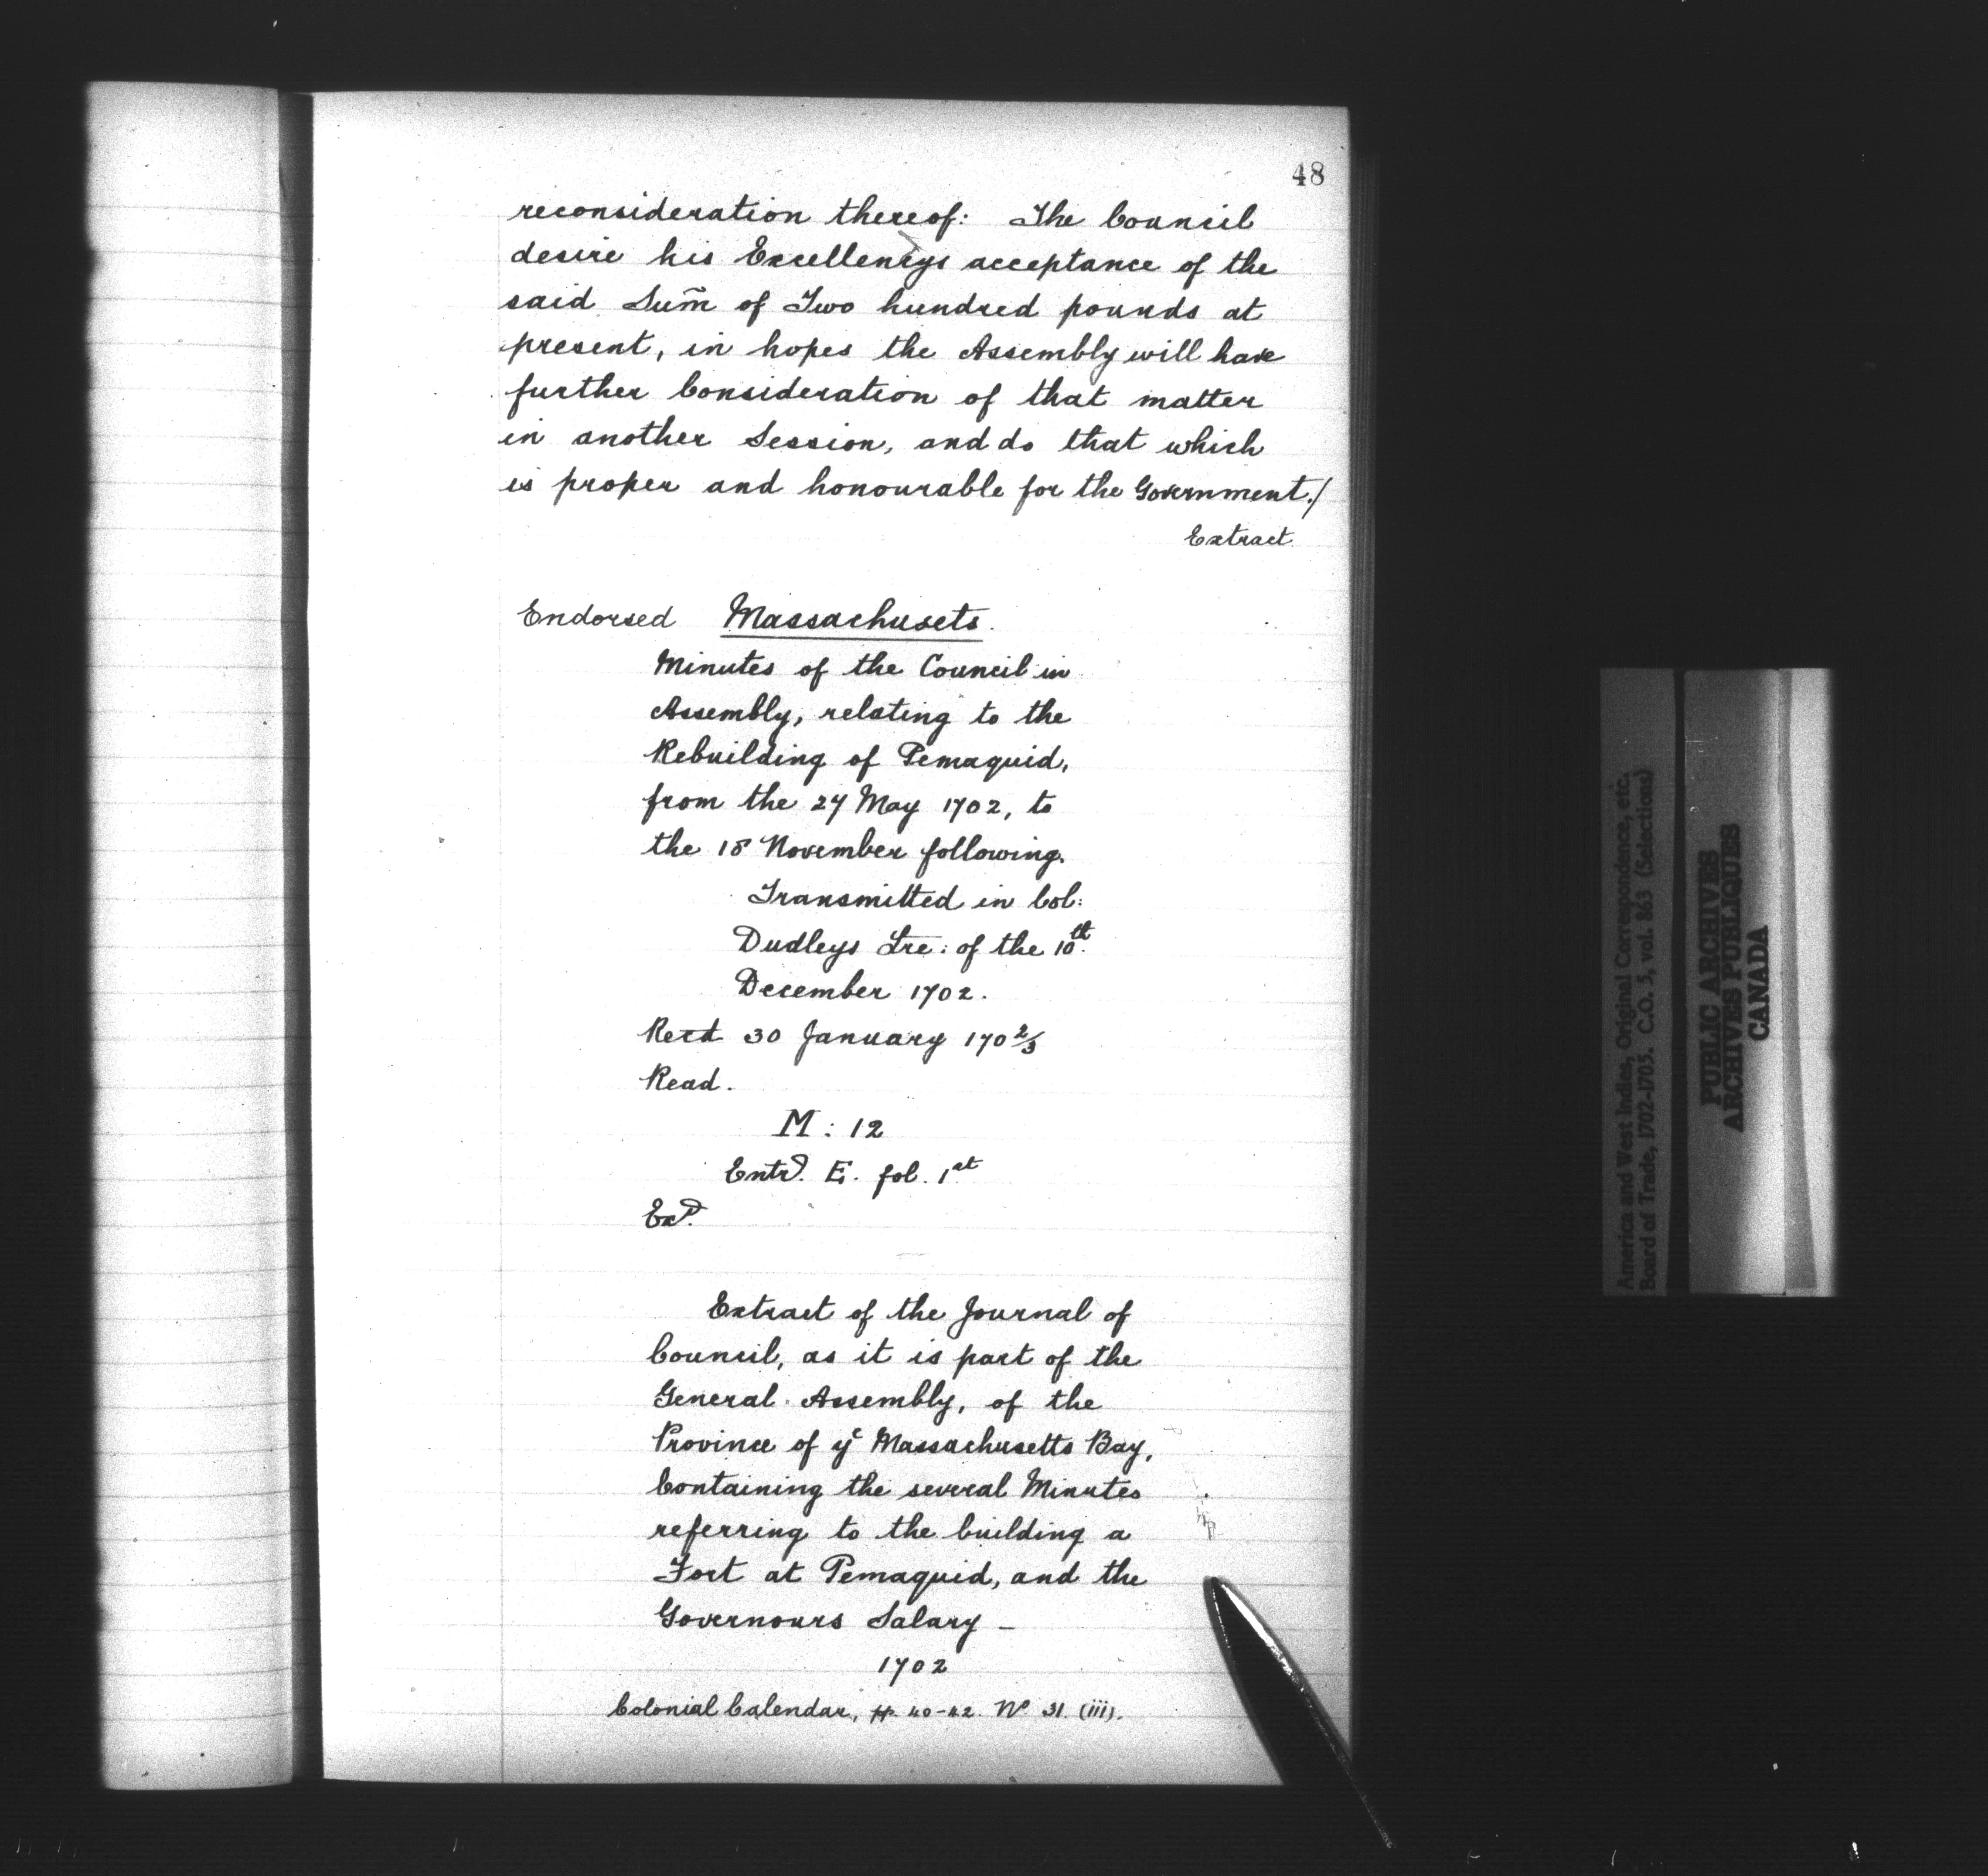 48
reconsideration thereof: The Council
desire his Excellencys acceptance of the
said Sum̃ of Two hundred pounds at
present, in hopes the Assembly will have
further Consideration of that matter
in another Session, and do that which
is proper and honourable for the Government./
Extract
Endorsed Massachusets.
Minutes of the Council in
Assembly, relating to the
Rebuilding of Pemaquid,
from the 27 May 1702, to
the 18 November following.
Transmitted in Col:
Dudleys Lre: of the 10th
December 1702.
Recd 30 January 170 2/3
Read.
M: 12
Entrd. E. fol. 1st
Exd.
Extract of the Journal of
Council, as it is part of the
General Assembly, of the
Province of ye Massachusetts Bay,
Containing the several Minutes
referring to the building a
Fort at Pemaquid, and the
Governours Salary —
1702
Colonial Calendar, pp. 40-42. No 31. (iii).
America and West Indies, Original Correspondence, etc.
Board of Trade, 1702-1705. C.O. 5, vol. 863 (Selections)
PUBLIC ARCHIVES
ARCHIVES PUBLIQUES
CANADA